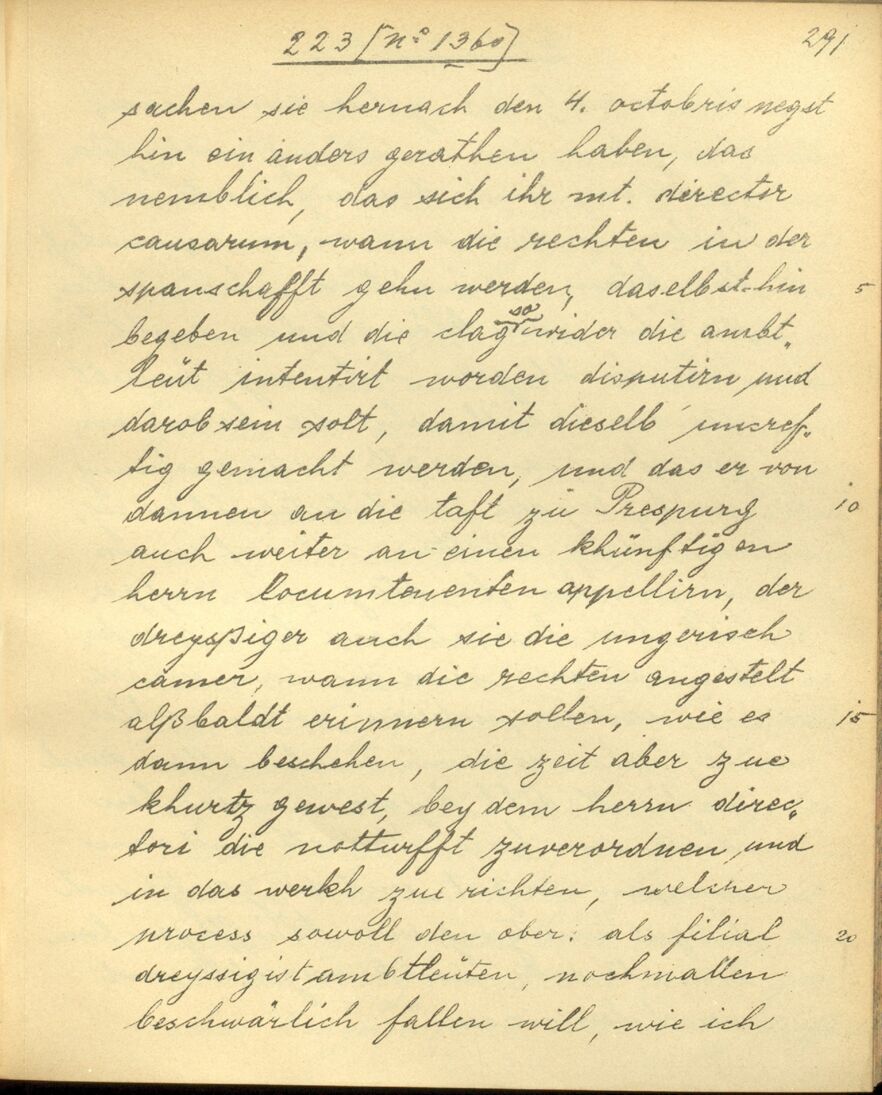 223 [nº 1360] 291
sachen sie hernach den 4. octobris negst
hin ein anders gerathen haben, das
nemblich, das sich ihr mt. director
causarum, wann die rechten in der
spanschafft gehn werden, daselbst hin 5
begeben und die clag so wider die ambt„
leüt intentirt worden disputirn und
darob sein solt, damit dieselb uncref„
tig gemacht werden, und das er von
dannen an die taft zu Prespurg 10
auch weiter an einen khünftigen
herrn locumtenenten appellirn, der
dreyßiger auch sie die ungerisch
camer, wann die rechten angestelt
alßbaldt erinnern sollen, wie es 15
dann beschehen, die zeit aber zue
khurtz gewest, bey dem herrn direc„
tori die notturfft zuverordnen und
in das werkh zue richten, welcher
process sowoll den ober: als filial 20
dreyssigist ambtleüten, nochmallen
beschwärlich fallen will, wie ich